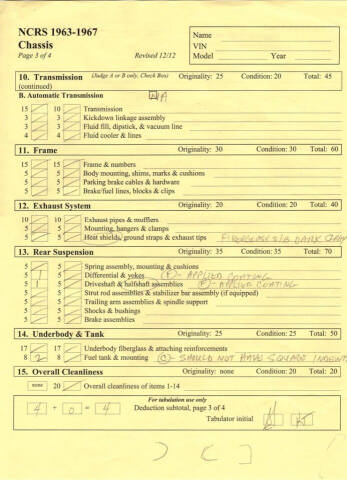 NCRS 1963-1967
Chassis
Page 3 of 4 Revised 12/12
Name
VIN
Model Year
10. Transmission (Judge A or B only, Check Box) Originality: 25 Condition: 20 Total: 45
(continued)
B. Automatic Transmission NA
15 10 Transmission
3 3 Kickdown linkage assembly
3 3 Fluid fill, dipstick, & vacuum line
4 4 Fluid cooler & lines
11. Frame Originality: 30 Condition: 30 Total: 60
15 15 Frame & numbers
5 5 Body mounting, shims, marks & cushions
5 5 Parking brake cables & hardware
5 5 Brake/fuel lines, blocks & clips
12. Exhaust System Originality: 20 Condition: 20 Total: 40
10 10 Exhaust pipes & mufflers
5 5 Mounting, hangers & clamps
5 5 Heat shields, ground straps & exhaust tips FIBERGLASS S/B DARK GRAY
13. Rear Suspension Originality: 35 Condition: 35 Total: 70
5 5 Spring assembly, mounting & cushions
5 1 5 Differential & yokes (F)- APPLIED COATING
5 1 5 Driveshaft & halfshaft assemblies (F)- APPLIED COATING
5 5 Strut rod assemblies & stabilizer bar assembly (if equipped)
5 5 Trailing arm assemblies & spindle support
5 5 Shocks & bushings
5 5 Brake assemblies
14. Underbody & Tank Originality: 25 Condition: 25 Total: 50
17 17 Underbody fiberglass & attaching reinforcements
8 2 8 Fuel tank & mounting (C)- SHOULD NOT HAVE SQUARE INDENT
15. Overall Cleanliness Originality: none Condition: 20 Total: 20
none 20 Overall cleanliness of items 1-14
For tabulation use only
4 + 0 = 4 Deduction subtotal, page 3 of 4
Tabulator initial